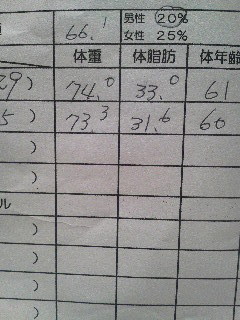 66.1 男性 20%
女性 25%
体重 体脂肪 体年齢
29) 74.0 33.0 61
5) 73.3 31.6 60
)
)
ル
)
)
)
)